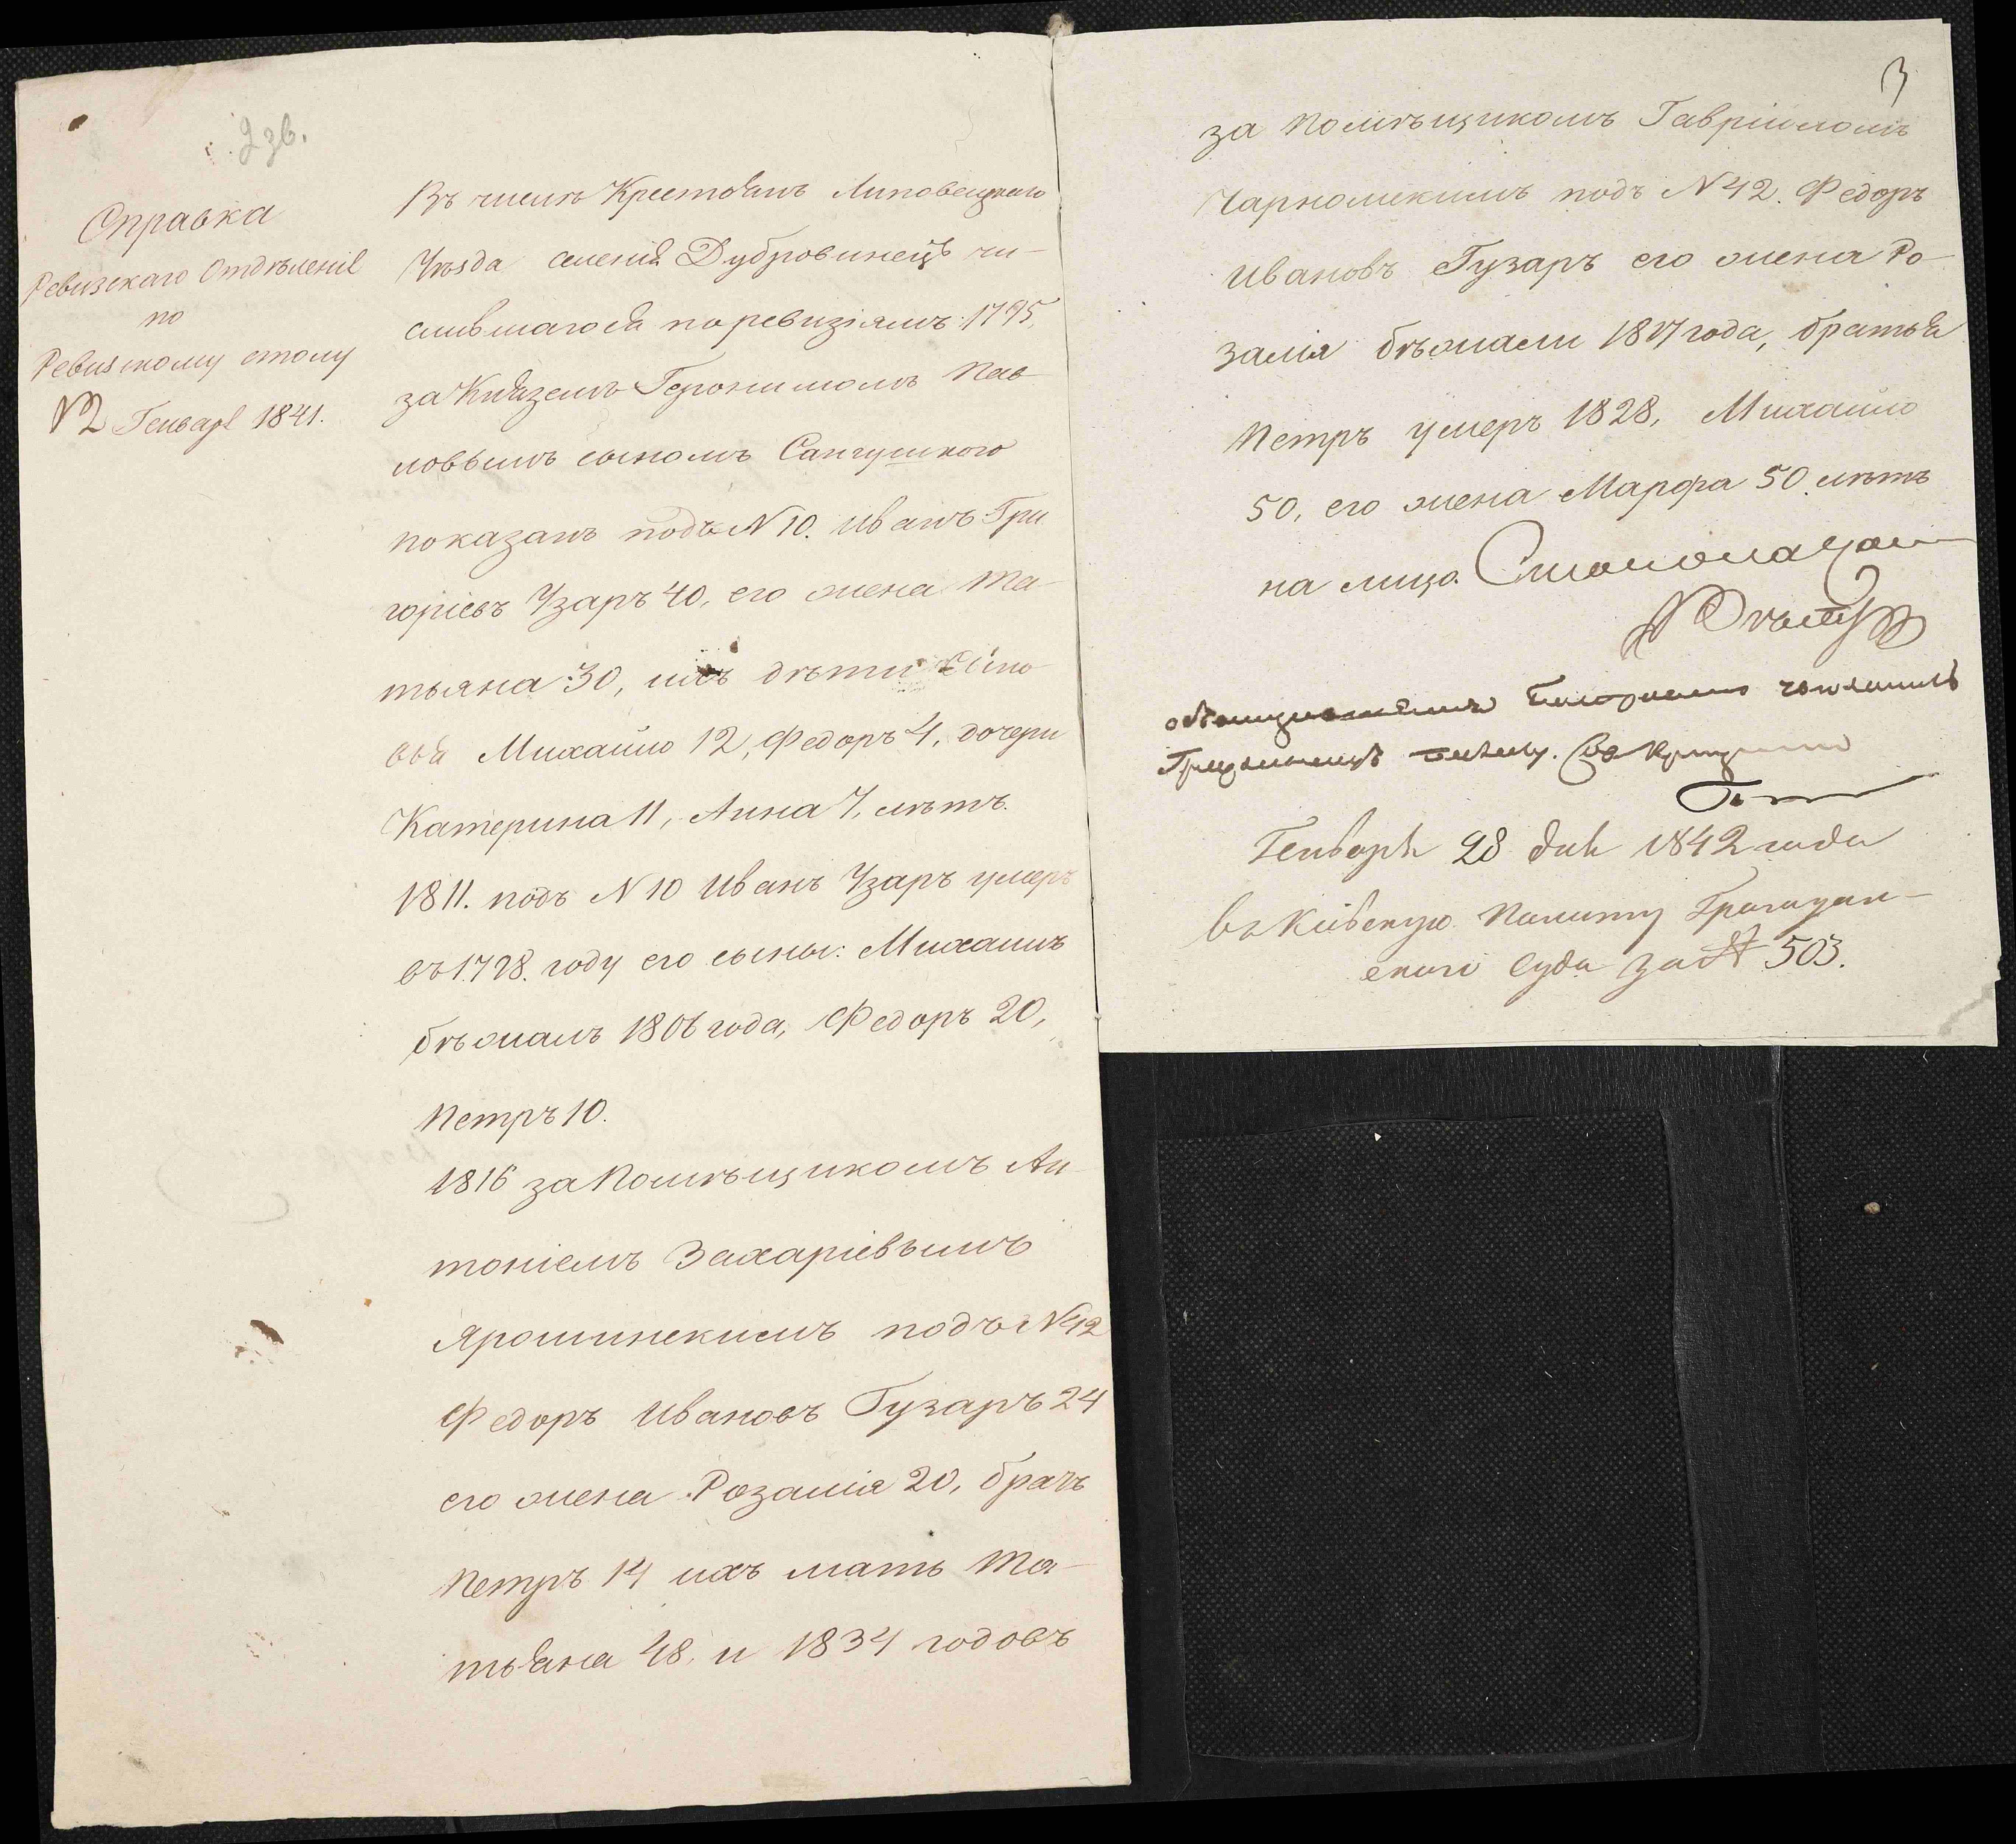 2 зв.
Справка
Ревизскаго Отдѣленія
по
Ревизскому столу
№2 Генваря 1841.
Въ числѣ Крестьянъ Липовецкаго
Уѣзда селенія Дубровинецъ чи-
слившагося по ревизіямъ: 1795,
за Княземъ Геронимомъ Пав-
ловымъ сыномъ Сангушкого
показанъ подъ N 10. Иванъ Гри
горіевъ Узаръ 40, его жена Та-
тьяна 30, ихъ дѣти сыно-
вья Михайло 12, Федоръ 4, дочери
Катерина 11, Анна 7, лѣтъ.
1811. подъ N 10 Иванъ Узаръ умеръ
въ 1798. году его сыны: Михаилъ
бѣжалъ 1806 года, Федоръ 20,
Петръ 10.
1816 за Помѣщикомъ Ан-
тоніемъ Захаріевымъ
Ярошинскимъ подъ N 42
Федоръ Ивановъ Гузаръ 24
его жена Розалія 20, братъ
Петръ 14 ихъ мать Та-
тьяна 48. и 1834 годовъ
3
за Помѣщикомъ Гавріиломъ
Чарномскимъ подъ N 42. Федоръ
Ивановъ Гузаръ его жена Ро-
залія бѣжали 1817 года, братья
Петръ умеръ 1828, Михайло
50, его жена Марфа 50 лѣтъ
на лицо.
Генваря 28 дня 1842 года
въ Кіевскую Палату Граждан-
скаго Суда за № 503.